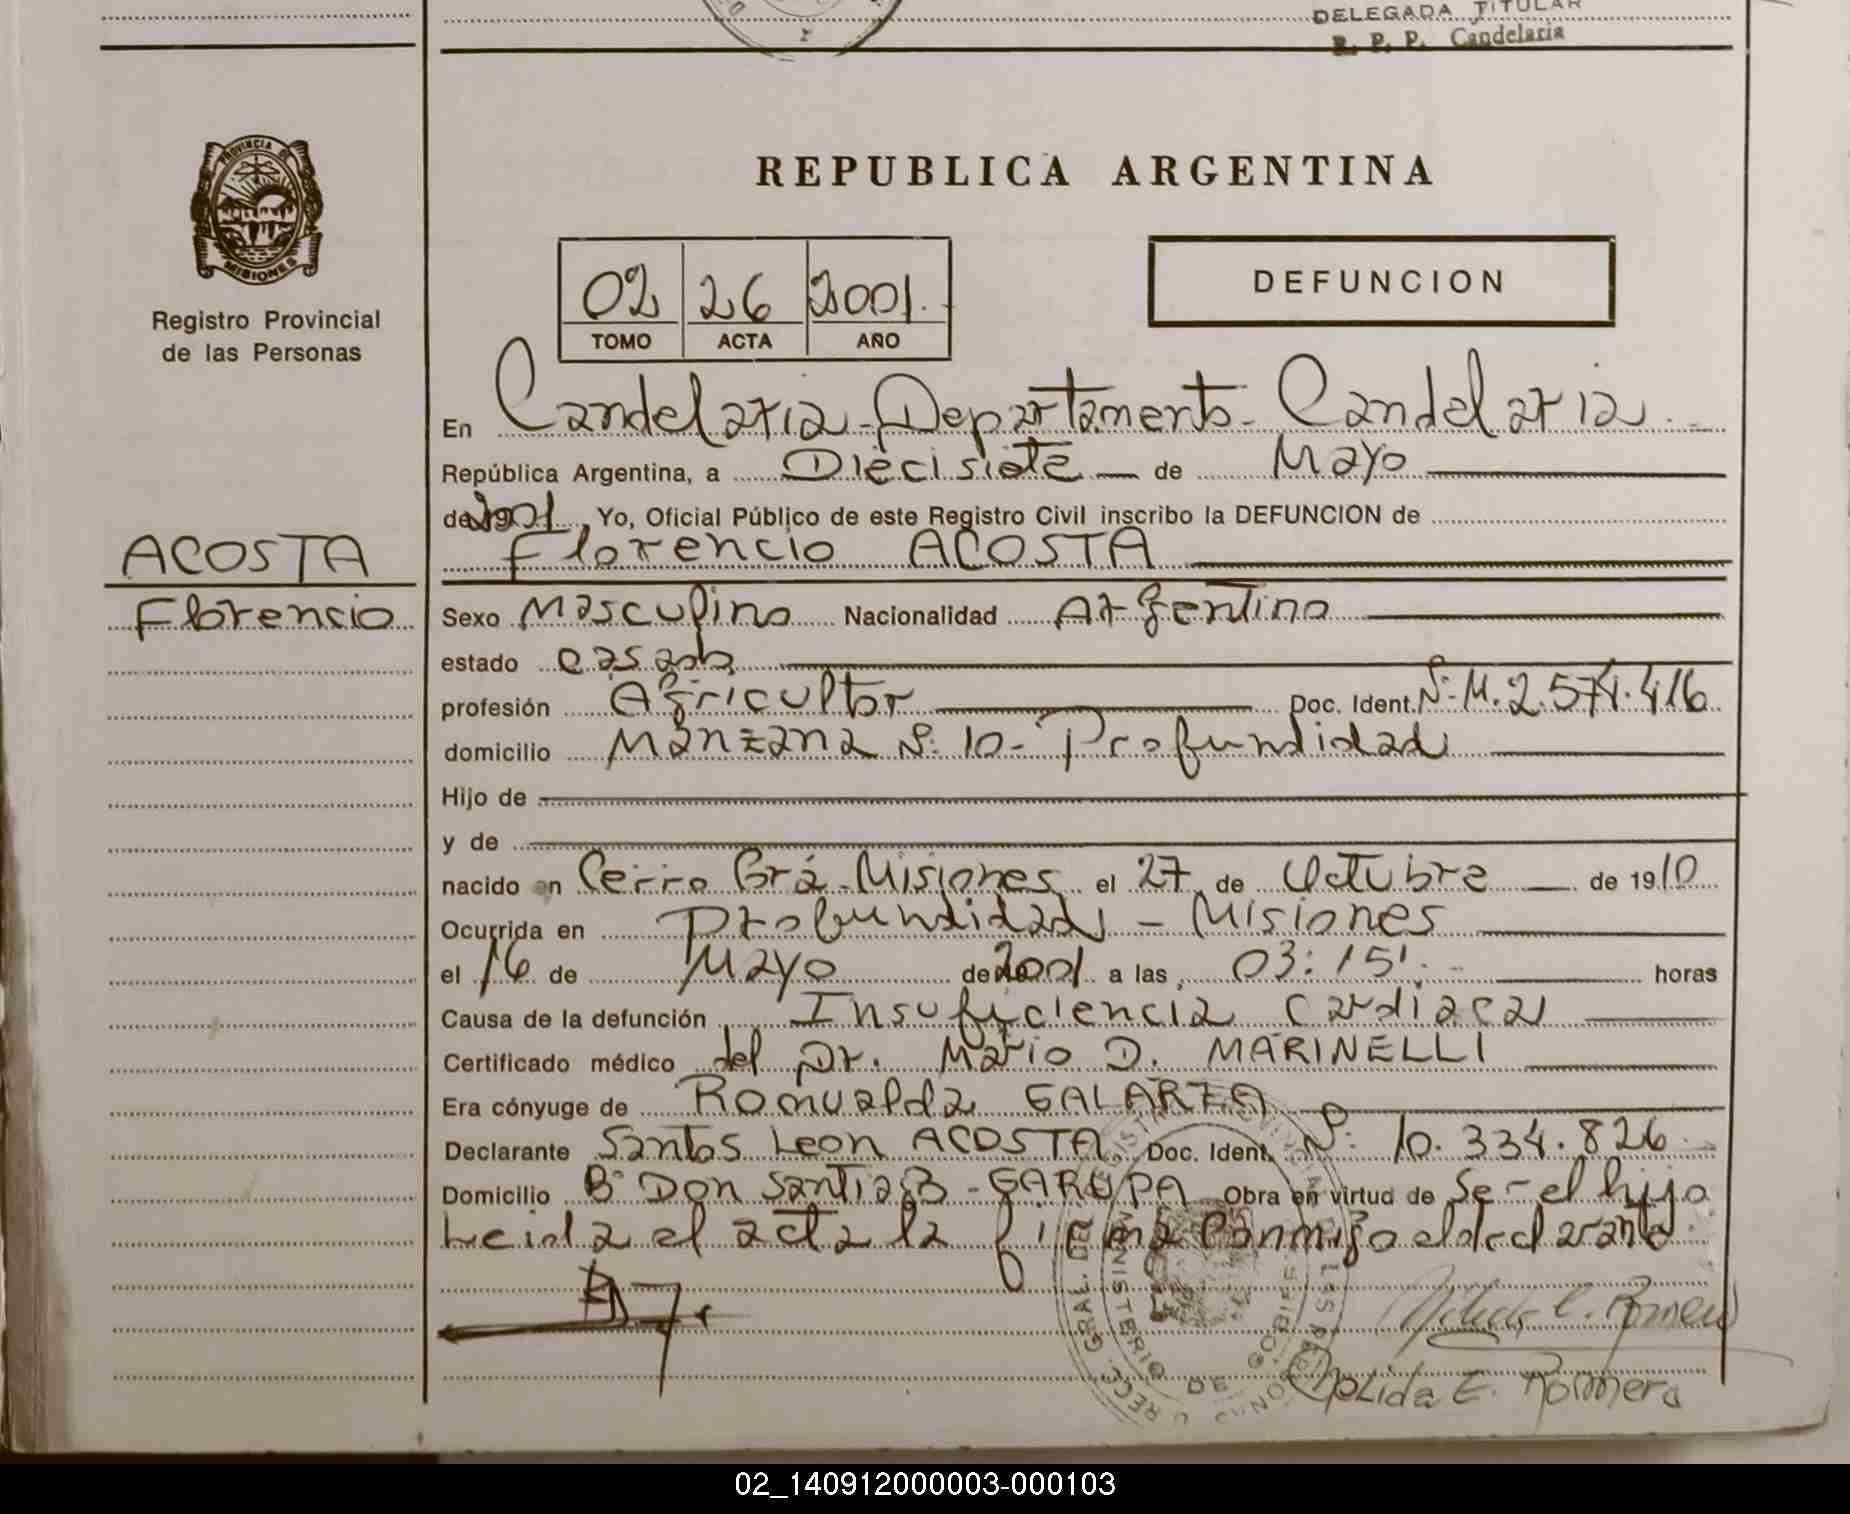 DELEGADA TITULAR
R. P. P. Candelaria
PROVINCIA DE
MISIONES
Registro Provincial
de las Personas
REPUBLICA ARGENTINA
02 26 2001.
TOMO ACTA AÑO
DEFUNCION
En Candelaria - Departamento - Candelaria
República Argentina, a Diecisiete de Mayo
de 2001, Yo, Oficial Público de este Registro Civil inscribo la DEFUNCION de
Florencio ACOSTA
ACOSTA
Florencio
Sexo Masculino Nacionalidad Argentino
estado casado
profesión Agricultor Doc. Ident. Nº M. 2.574.416
domicilio Manzana Nº 10 - Profundidad
Hijo de
y de
nacido en Cerro Corá - Misiones el 27 de Octubre de 1910
Ocurrida en Profundidad - Misiones
el 16 de Mayo de 2001 a las 03:15'. horas
Causa de la defunción Insuficiencia Cardiaca
Certificado médico del Dr. Mario D. MARINELLI
Era cónyuge de Romualda GALARZA
Declarante Santos Leon ACOSTA. Doc. Ident. Nº 10.334.826
Domicilio Bº Don Santiago - GARUPA Obra en virtud de Ser el hijo
Leida el acta la firma Conmigo el declarante
Nolida E. Romero
02_140912000003-000103